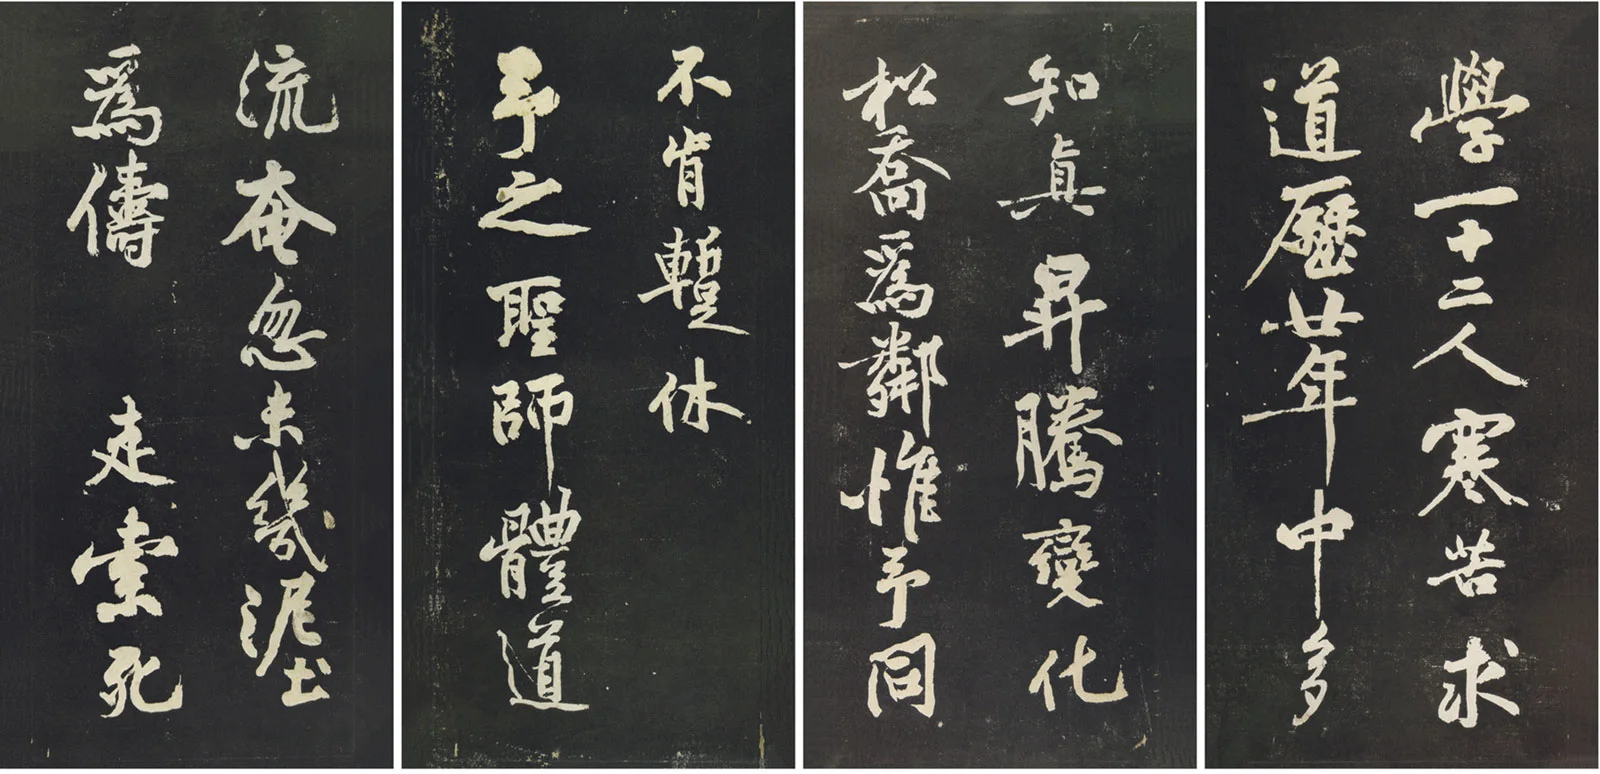 學一十二人寒苦求
道歷廿年中多
知真昇騰變化
松喬爲鄰惟予同
不肯暫休
予之聖師體道
流奄忽未幾泥土
爲儔 走索死